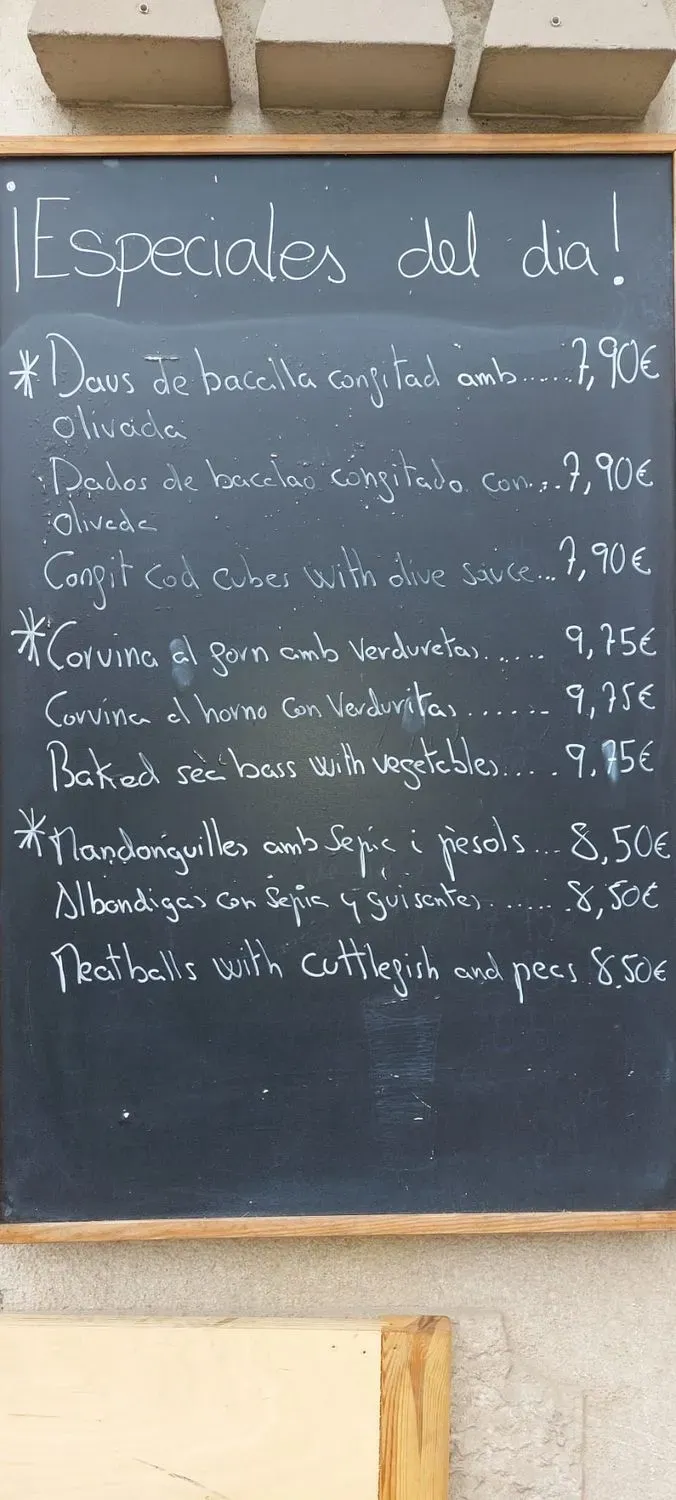 ¡Especiales del dia!
* Daus de bacallà confitad amb.....7,90€
olivada
Dados de bacalao confitado con...7,90€
olivada
Confit cod cubes with olive sauce...7,90€
* Corvina al forn amb verduretas...... 9,75€
Corvina al horno con verduritas....... 9,75€
Baked sea bass with vegetables..... 9.75€
* Mandonguilles amb sepia i pèsols ... 8,50€
Albondigas con sepia y guisantes....... 8,50€
Meatballs with cuttlefish and peas 8.50€